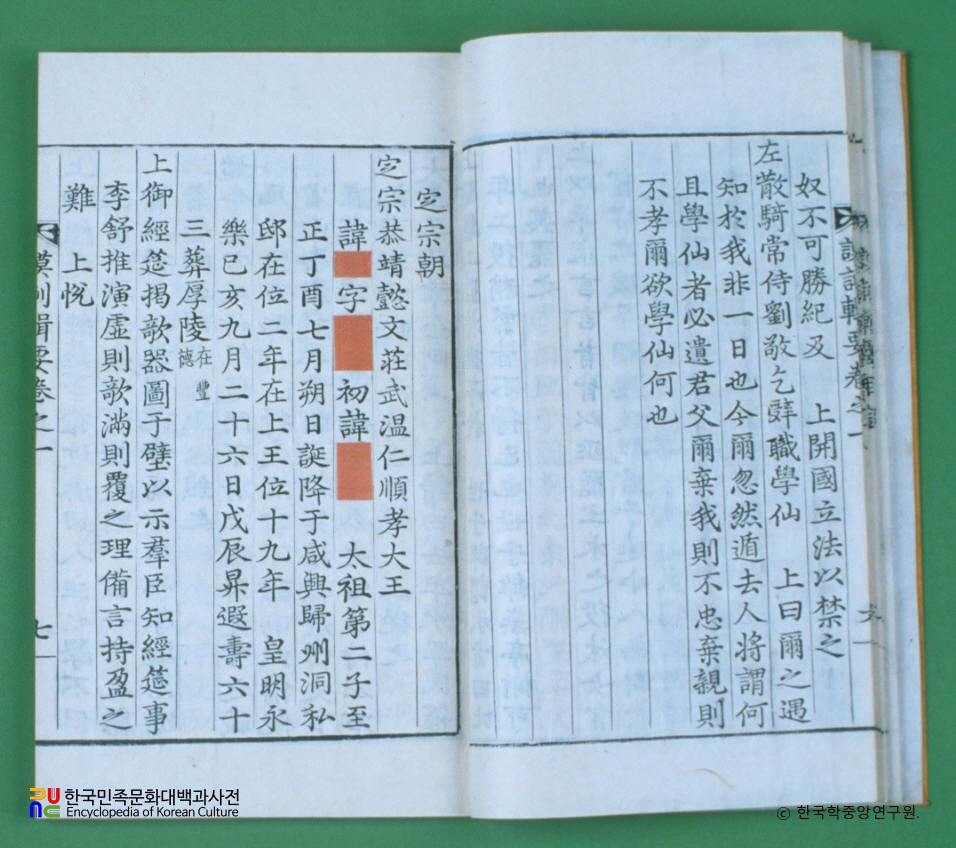 奴不可勝紀及 上開國立法以禁之
左散騎常侍劉敬乞辭職學仙 上曰爾之遇
知於我非一日也今爾忽然遁去人將謂何
且學仙者必遺君父爾棄我則不忠棄親則
不孝爾欲學仙何也
㝎宗朝
㝎宗恭靖懿文莊武温仁順孝大王
諱 字 初諱 太祖第二子至
正丁酉七月朔日誕降于咸興歸州洞私
邸在位二年在上王位十九年 皇明永
樂己亥九月二十六日戊辰昇遐壽六十
三葬厚陵在豐德
上御經筵揭欹器圖于壁以示羣臣知經筵事
李舒推演虛則欹滿則覆之理備言持盈之
難 上悅
謨訓輯要卷之一 七
한국민족문화대백과사전
Encyclopedia of Korean Culture
© 한국학중앙연구원.